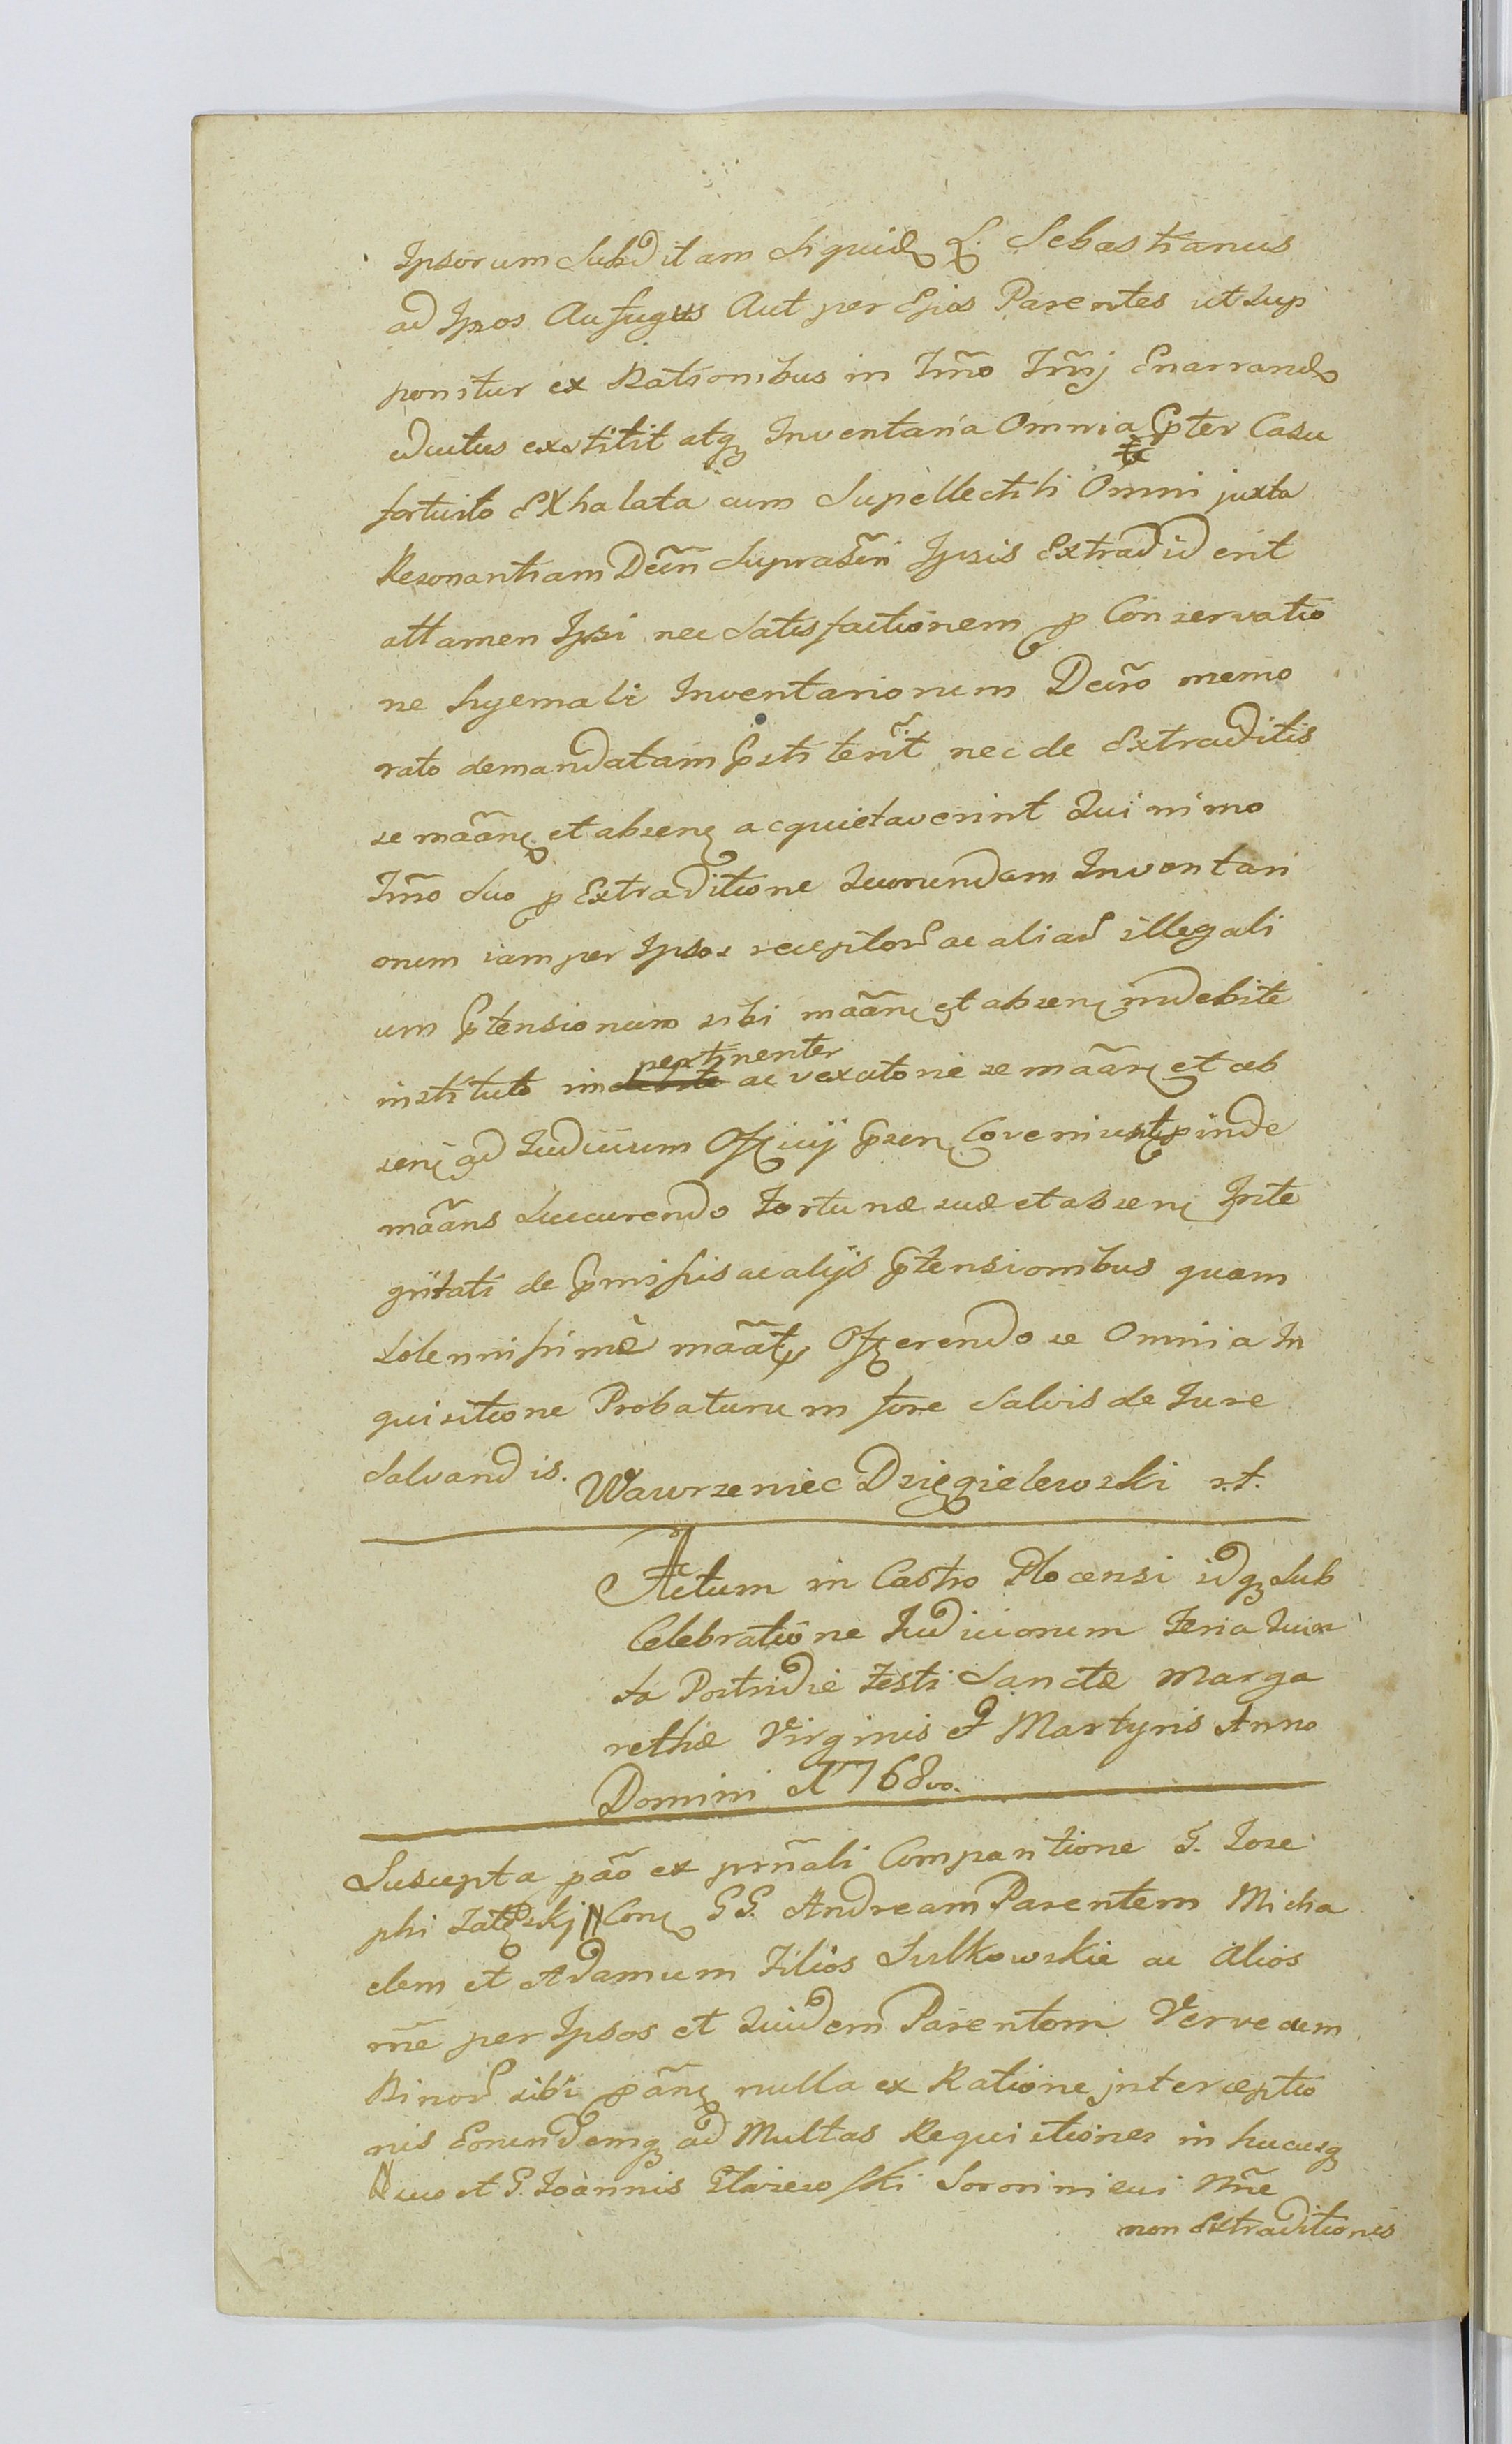 Ipsorum Subditam siquid L. Sebastianus
ad Ipsos Aufugus Aut per Ejus Parentes ut sup
ponitur ex Rationibus in Tmo Tmj Enarrand
eductus exstitit atq Inventaria Omnia Pter Casu
fortuito EXhalata cum Supellectili Omni juxta
Resonantiam Decri Suprascri Ipsis Extradid erit
attamen Ipsi nec Satisfactionem p Conservatio
ne hyemali Inventariorum Decro memo
rato demandatam Pstiterit nec de Extraditis
se maan et absen acquietaverint Quinimo
Tmo duo p Extraditione Quorundam Inventari
orum iam per Ipsos receptor ac aliar illegali
um Ptensionum sibi maan et absen indebite
instituto impertinenter ac vexatorie se maan et ab
sen ad Iudicium Officij Psen Coveniunt proinde
maans Succurendo Fortunæ suæ et absen Inte
gritati de Pmissis ac alijs Ptensionibus quam
Solennissimè maat Offerendo se Omnia In
quisitione Probaturum fore Salvis de Iure
Salvandis. Wawrzeniec Dzięgielewski s.t.
Actum in Castro Plocensi idq Sub
Celebratione Iudiciorum Feria Quin
ta Postridie Festi Sanctæ Marga
rethæ Virginis et Martyris Anno
Domini 1768vo.
Suscepta pao ex prnali Comparitione G. Iose
phi Con GG. Andream Parentem Micha
elem et Adamum Filios Sulkowskie ac Alios
me per Ipsos et Quidem Parentem Vervecum
Binor sibi pan nulla ex Ratione intercepti
nis Eorundemq ad Multas Requisitiones in hucusq
suo et G. Ioannis Sororini sui Mne
non Extraditionis